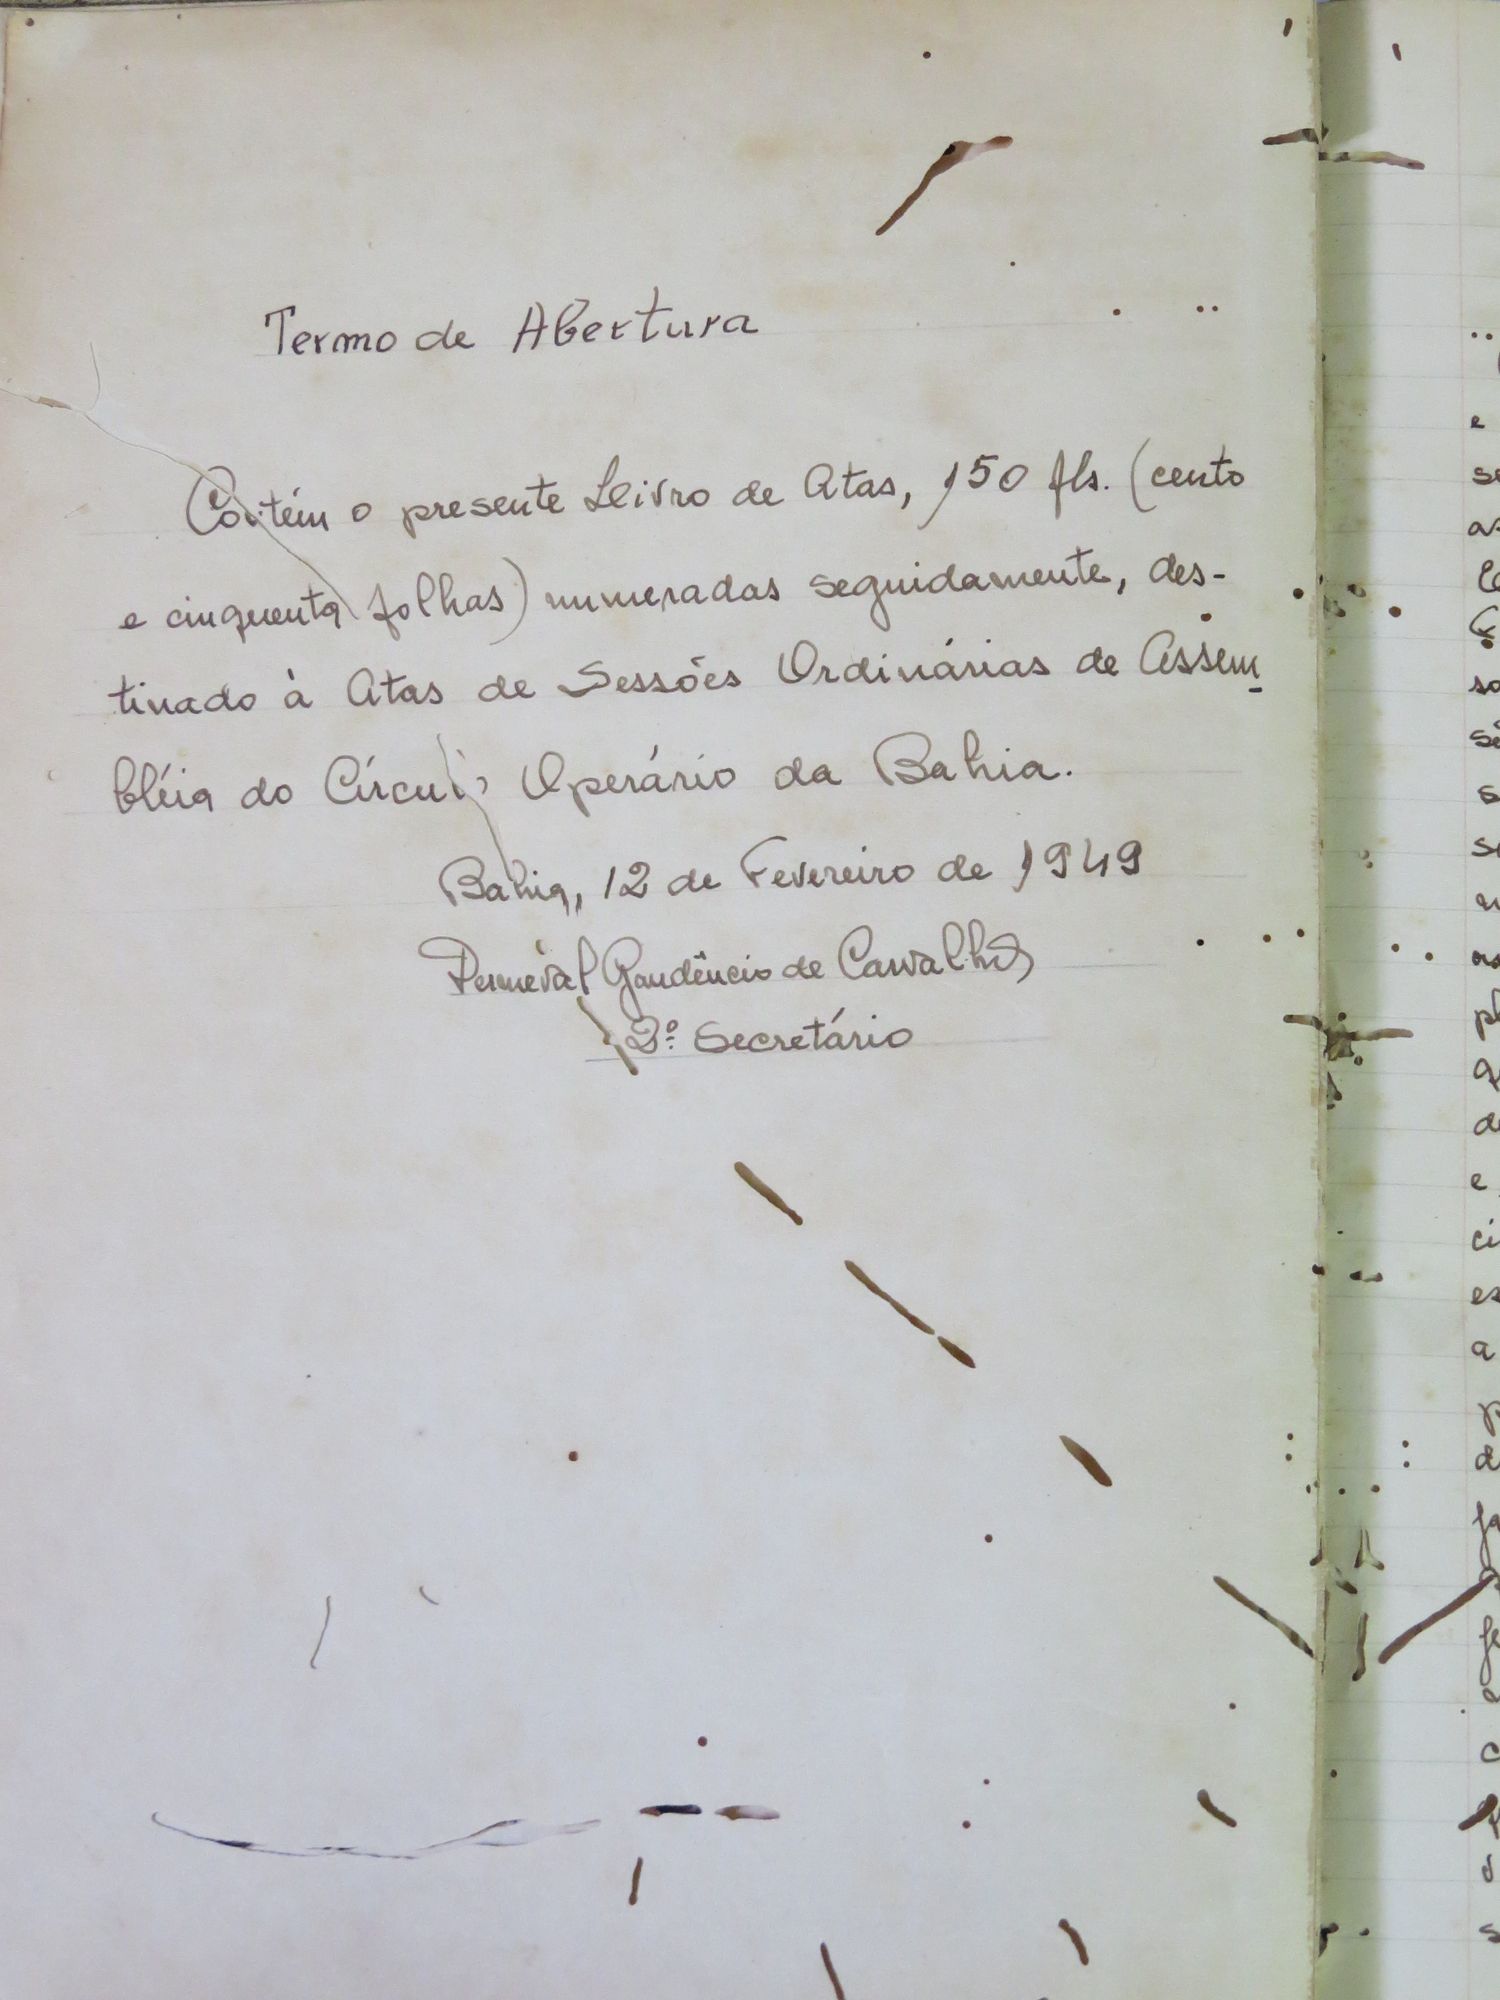 Termo de Abertura
Contém o presente Livro de Atas, 150 fls. (cento
e cinquenta folhas) numeradas seguidamente, des-
tinado à Atas de Sessões Ordinárias de Assem-
bléia do Círculo Operário da Bahia.
Bahia, 12 de Fevereiro de 1949
Permeval Gaudêncio de Carvalho
2º Secretário